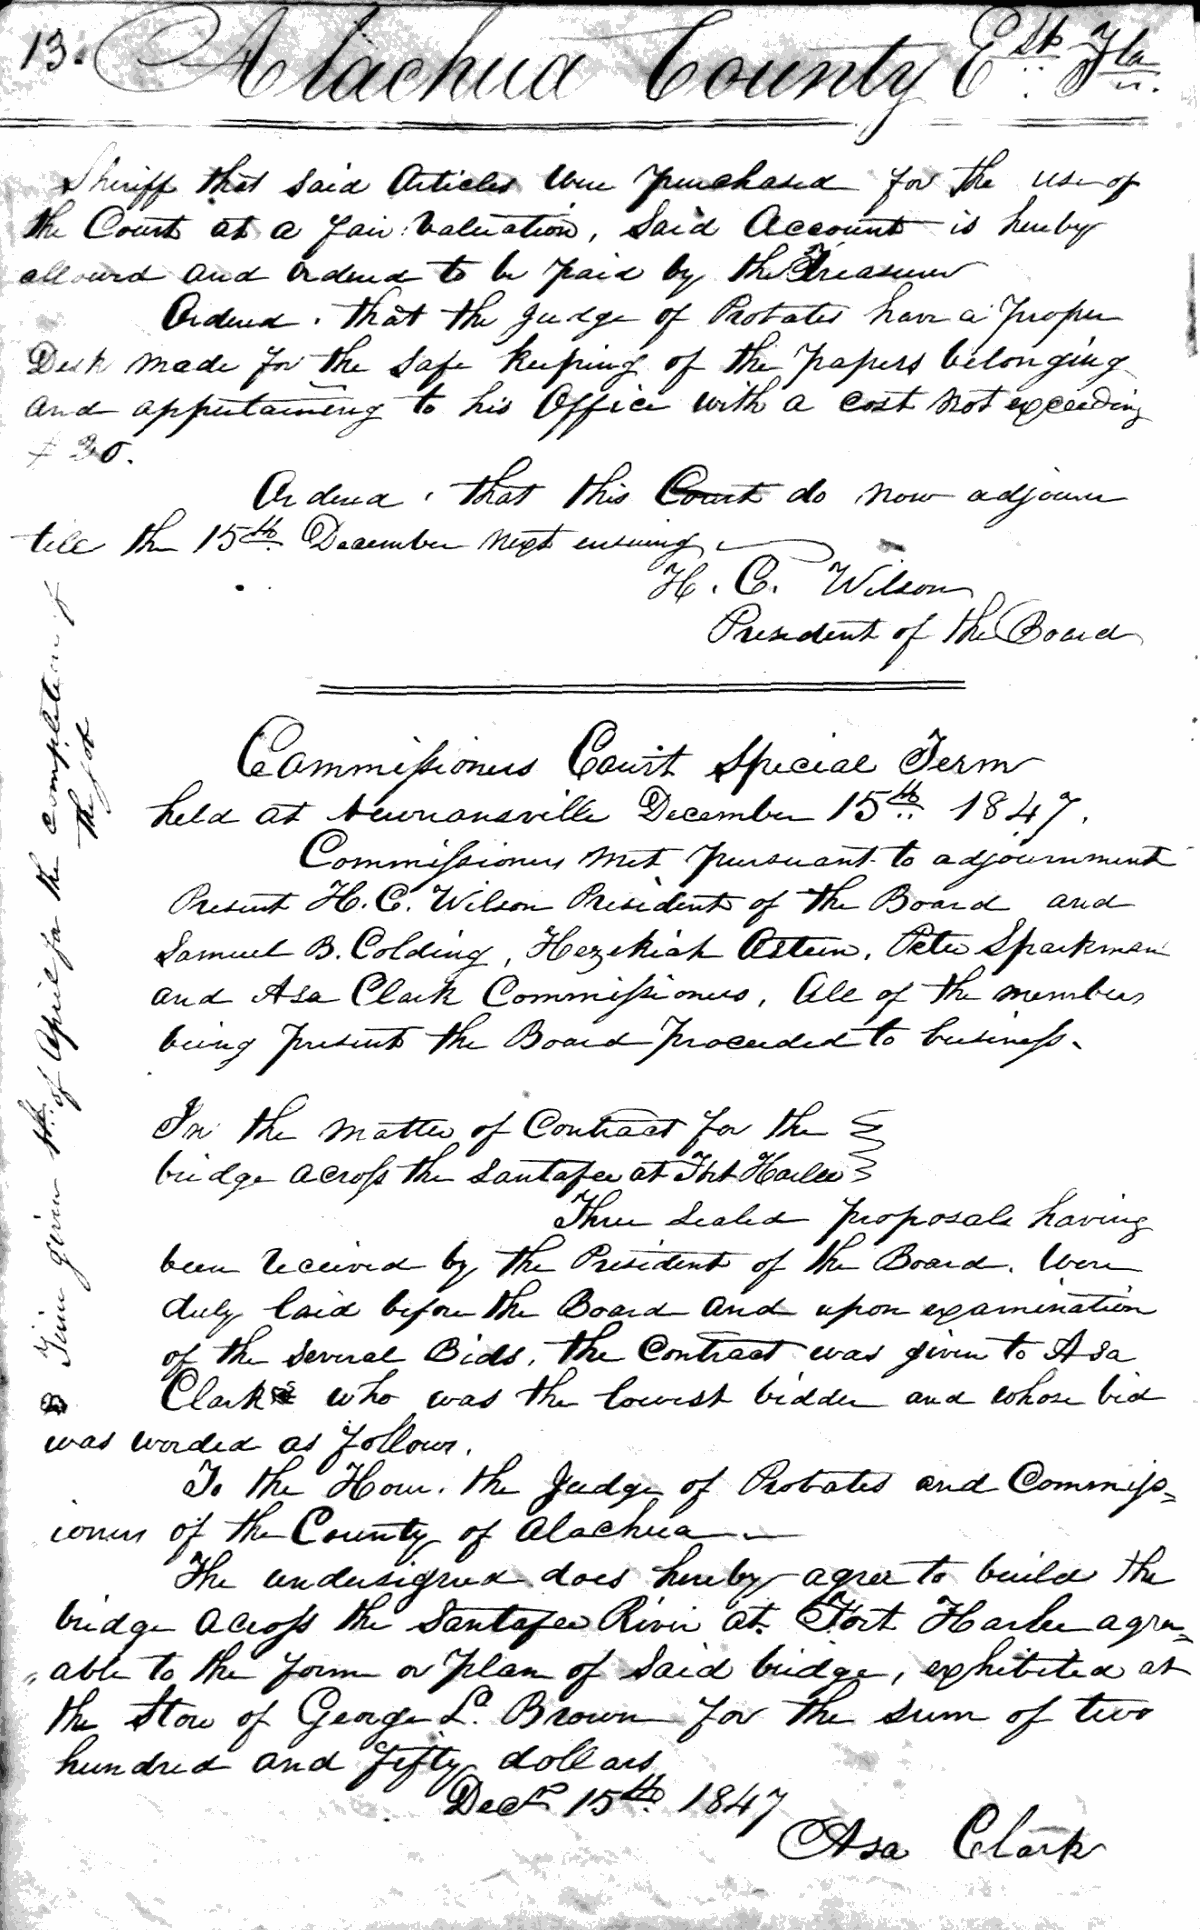 13. Alachua County Est. Fla.
Sheriff that said Articles were purchased for the use of
the Court at a fair valuation, Said Account is hereby
allowed and ordered to be paid by the Treasurer
Ordered, that the Judge of Probates have a proper
Desk made for the safe keeping of the papers belonging
and appertaining to his Office with a cost not exceeding
$30.
Ordered, that this Court do now adjourn
till the 15th December next ensuing
H. C. Wilson
President of the Board
Commissioners Court Special Term
held at Newnansville December 15th 1847.
Commissioners met pursuant to adjournment
Present H. C. Wilson President of the Board and
Samuel B. Colding, Hezekiah Osteen, Peter Sparkman
and Asa Clark Commissioners, All of the members
being present the Board proceeded to business.
In the matter of Contract for the
bridge across the Santafee at Fort Harlee
Three sealed proposals having
been received by the President of the Board. Were
duly laid before the Board and upon examination
of the several Bids, the Contract was given to Asa
Clark who was the lowest bidder and whose bid
was worded as follows.
To the Honr. the Judge of Probates and Commiss=
ioners of the County of Alachua
The undersigned does hereby agree to build the
bridge across the Santafee River at Fort Harlee agre=
"able to the form or plan of said bridge, exhibited at
the Store of George L. Brown for the sum of two
hundred and fifty dollars
Decr 15th 1847
Asa Clark
Time given 1st. of April for the completion of
the job